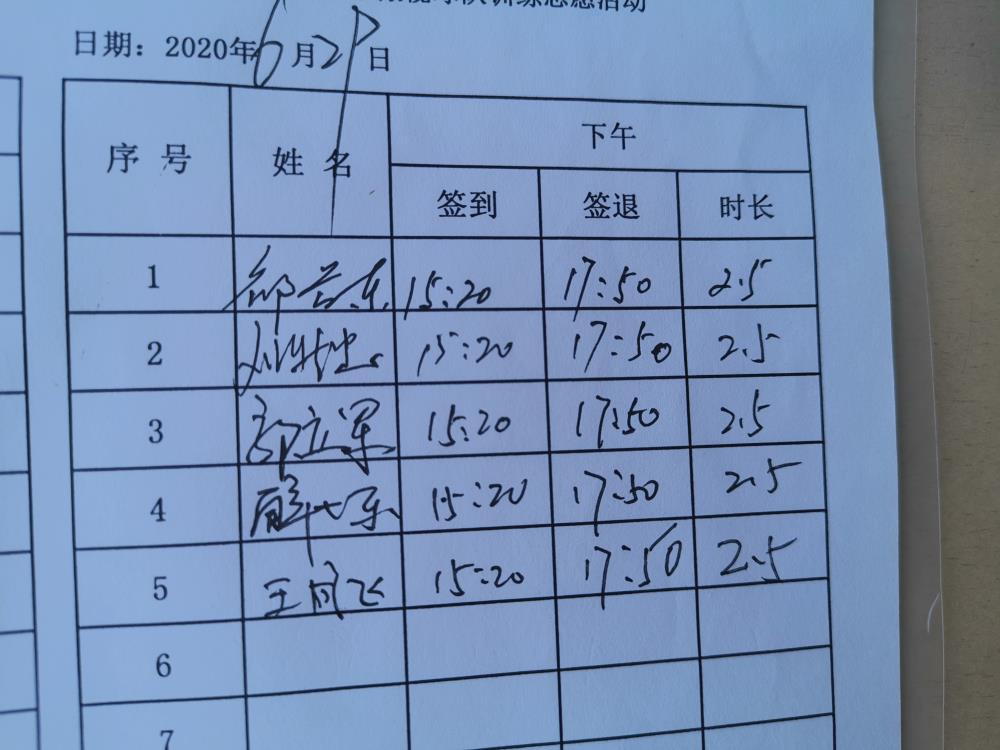 训练志愿活动
日期：2020年6月29日
序号 姓名 下午
签到 签退 时长
1 15:20 17:50 2.5
2 15:20 17:50 2.5
3 郭立军 15:20 17:50 2.5
4 15:20 17:50 2.5
5 王月飞 15:20 17:50 2.5
6
7